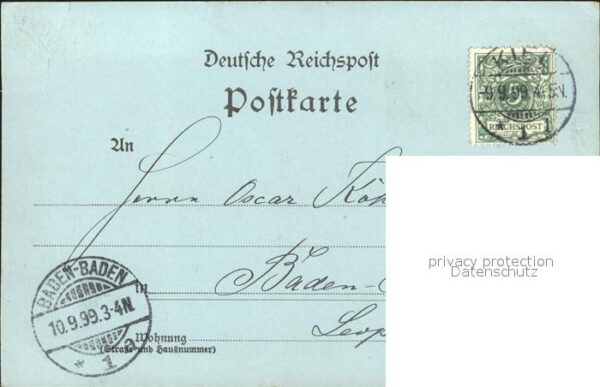 Deutsche Reichspost
Postkarte
An
Herrn Oscar Köh
Baden-
in
Leop
Wohnung
(Straße und Hausnummer)
KIEL
9.9.99.4-5N.
* 1
REICHSPOST
BADEN-BADEN
10.9.99.3-4N.
* 1 a
privacy protection
Datenschutz